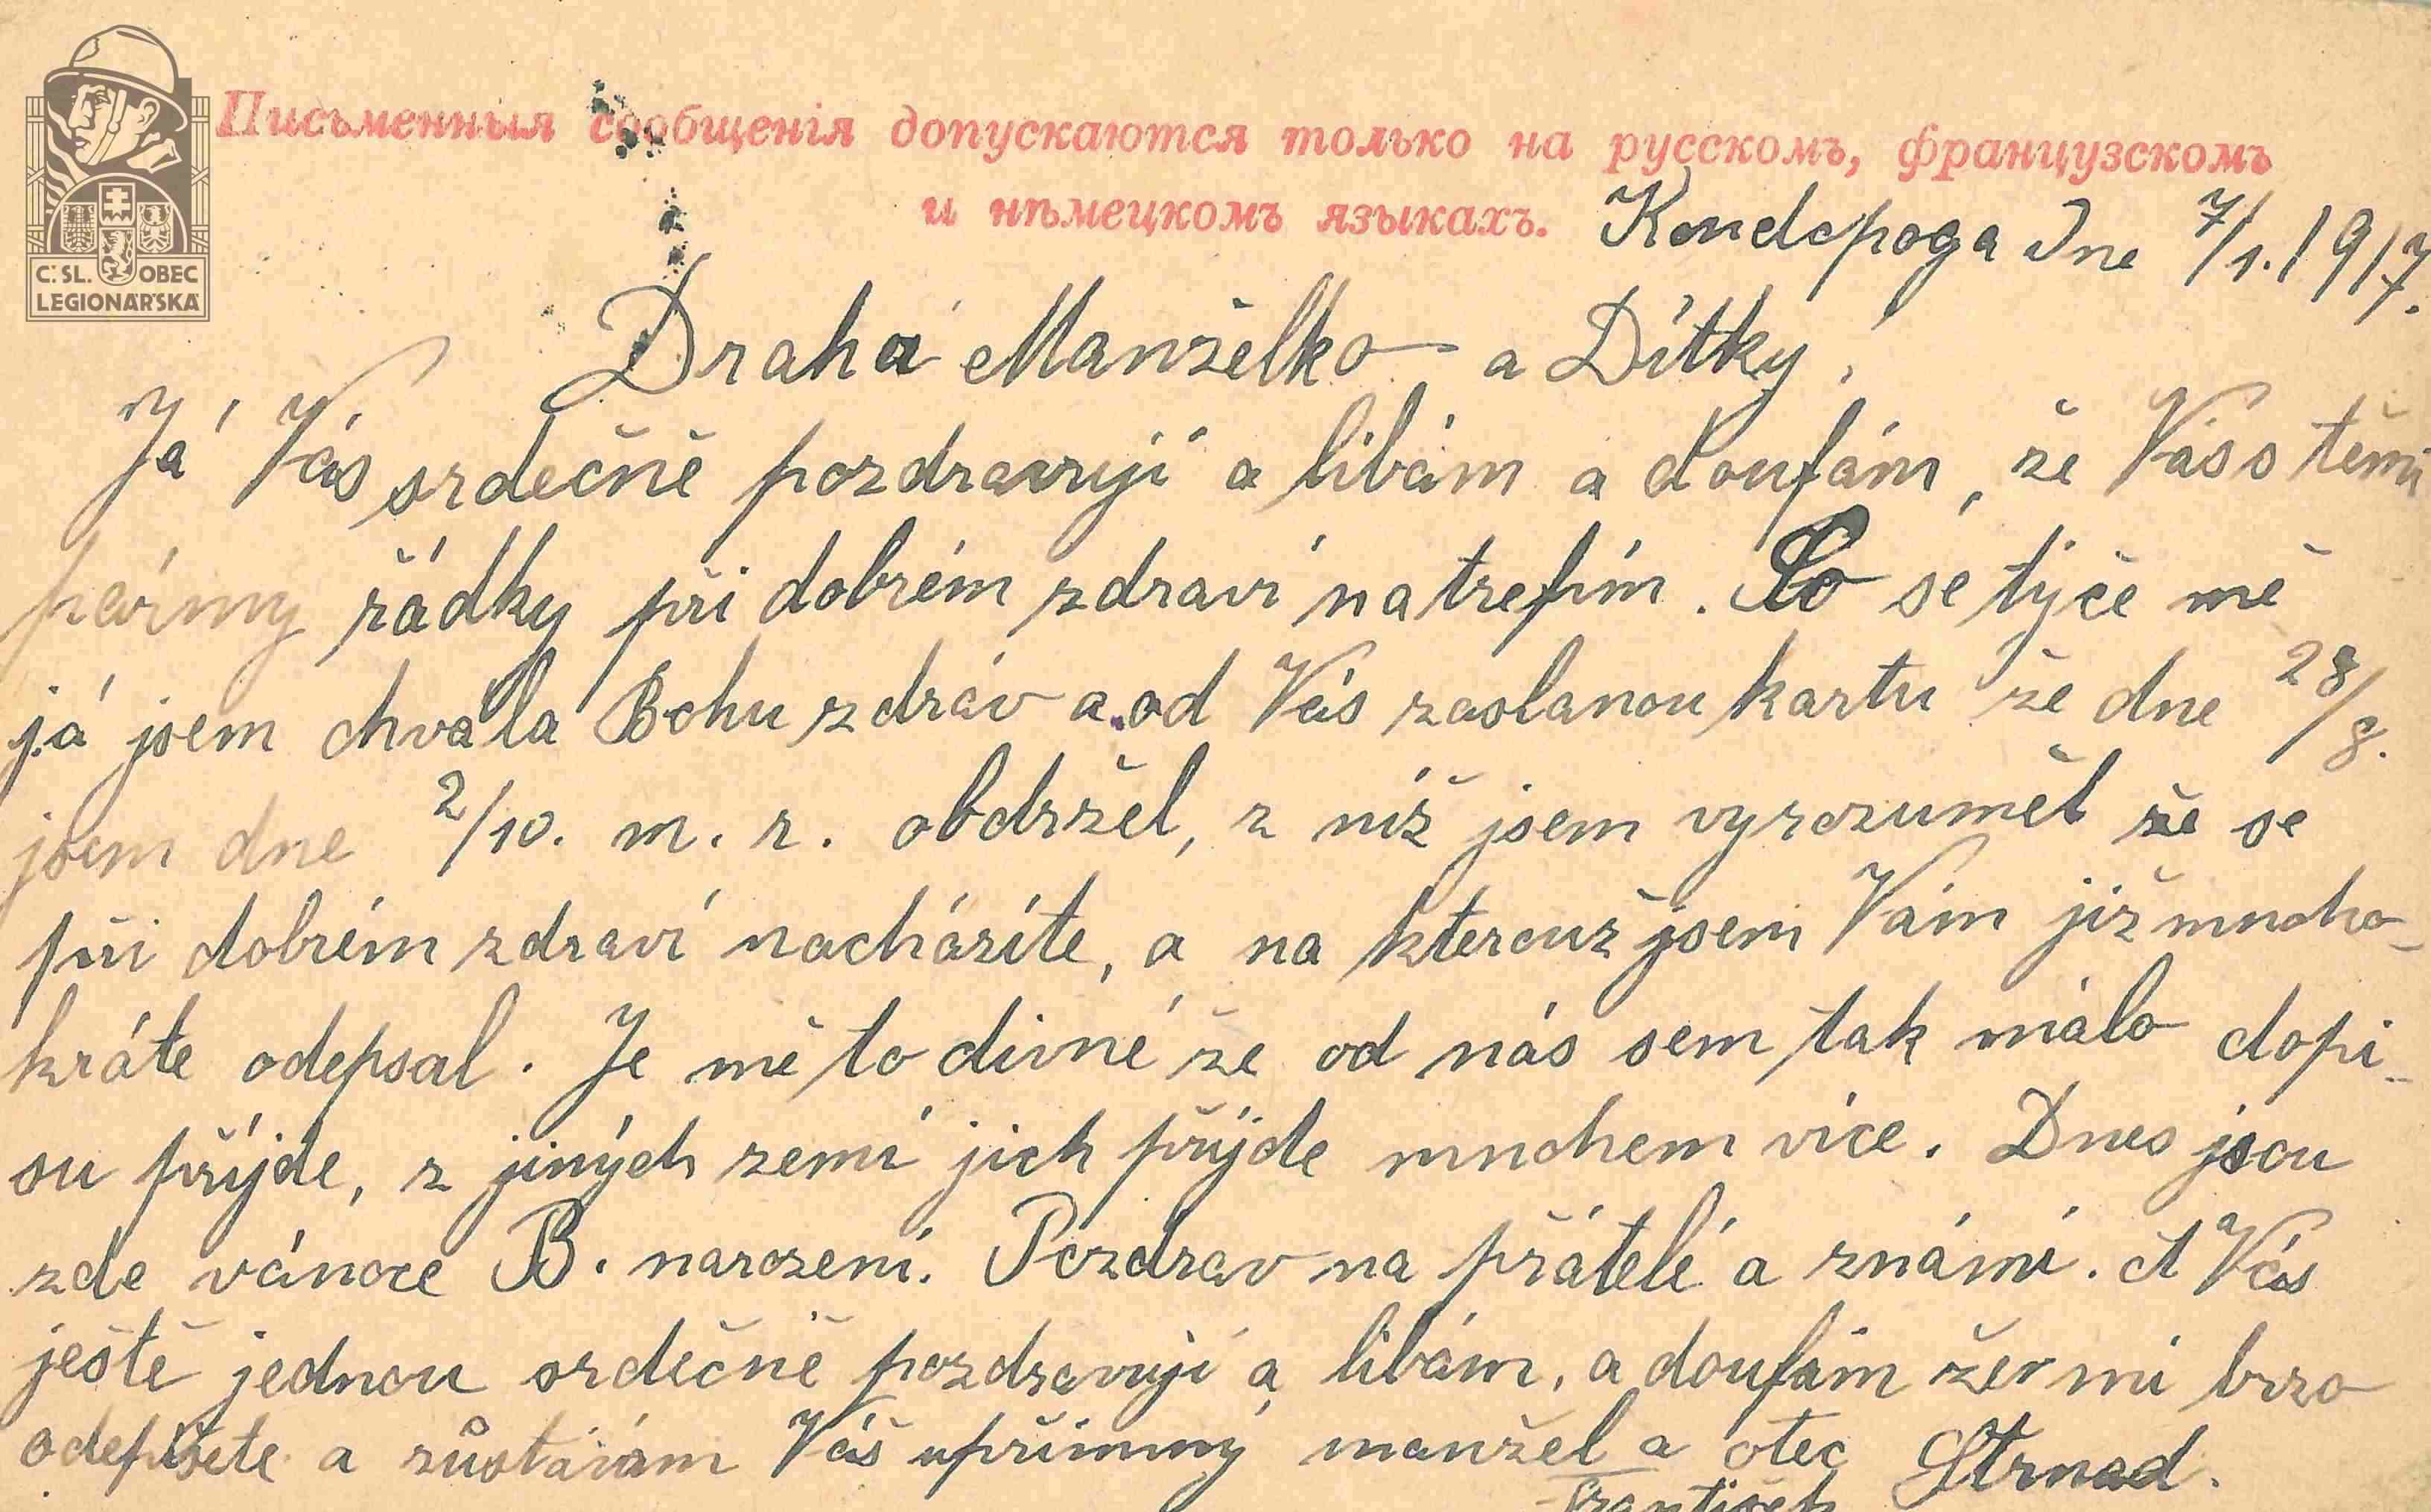 C.SL. OBEC
LEGIONÁŘSKÁ
Письменныя сообщенія допускаются только на русскомъ, французскомъ
и нѣмецкомъ языкахъ.
Kondopoga Dne 7/1. 1917.
Drahá Manželko a Dítky!
Já Vás srdečně pozdravují a líbám a doufám, že Vás s těmi
pármy řádky při dobrém zdraví natrefím. Co se týče mě
já jsem chvála Bohu zdráv a od Vás zaslanou kartu ze dne 28/8.
jsem dne 2/10. m. r. obdržel, z níž jsem vyrozuměl že se
při dobrém zdraví nacházíte, a na kterouž jsem Vám již mnoho-
kráte odepsal. Je mě to divné že od nás sem tak málo dopi-
su příjde, z jiných zemí jich příjde mnohem více. Dnes jsou
zde vánoce B. narození. Pozdrav na přátelé a známí. A Vás
ještě jednou srdečně pozdravují a líbám, a doufám že mi brzo
odepíšete a zůstávám Váš upřímný manžel a otec Strnad.
František